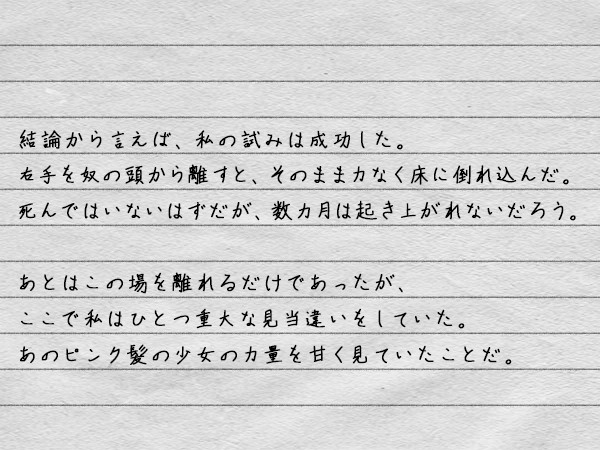 結論から言えば、私の試みは成功した。
右手を奴の頭から離すと、そのまま力なく床に倒れ込んだ。
死んではいないはずだが、数カ月は起き上がれないだろう。
あとはこの場を離れるだけであったが、
ここで私はひとつ重大な見当違いをしていた。
あのピンク髪の少女の力量を甘く見ていたことだ。